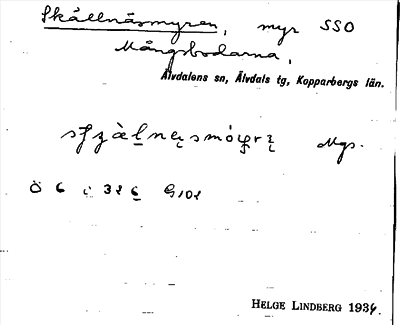 Skållnäsmyren, myr SSO
Mångsbodarna,
Älvdalens sn, Älvdals tg, Kopparbergs län.
Mgs.
Ö 6 c 326 G102
HELGE LINDBERG 1934.